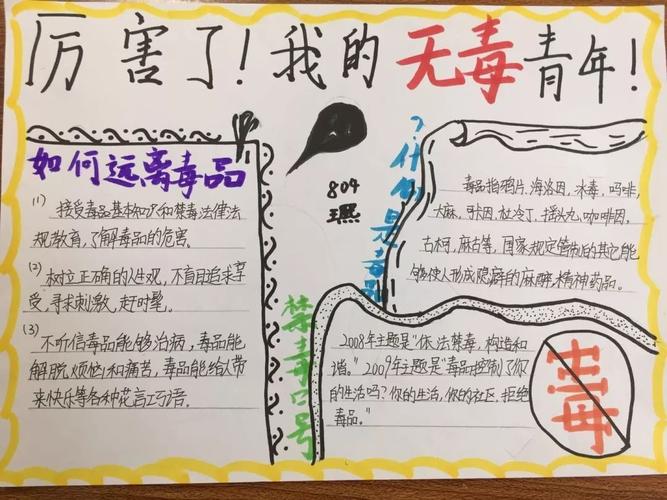 厉害了！我的无毒青年！
如何远离毒品
(1) 接受毒品基本知识和禁毒法律法
规教育，了解毒品的危害。
(2) 树立正确的人生观，不盲目追求享
受，寻求刺激，赶时髦。
(3) 不听信毒品能够治病，毒品能
解脱烦恼和痛苦，毒品能给人带
来快乐等各种花言巧语。
804
什么是毒品？
毒品指鸦片，海洛因，冰毒，吗啡，
大麻，可卡因，杜冷丁，摇头丸，咖啡因，
古柯，麻古等，国家规定管制的其它能
够使人形成隐癖的麻醉，精神药品。
禁毒口号
2008年主题是"依法禁毒，构造和
谐。"2009年主题是"毒品控制了你
的生活吗？你的生活，你的社区，拒绝
毒品。"
毒